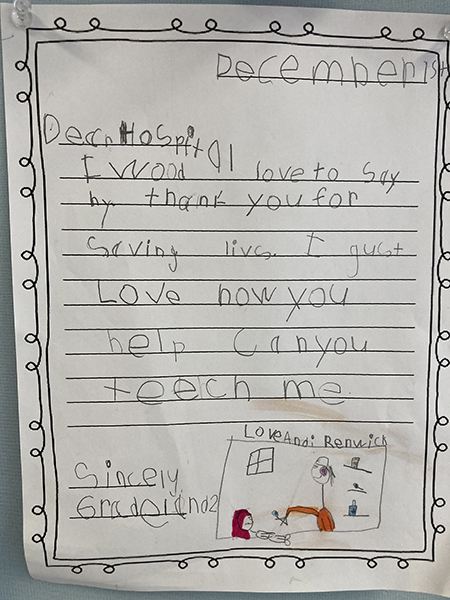 December 1st
Dear Hospital
I wood love to say
by thank you for
Saving livs. I gust
Love how you
help Can you
teech me
Love Andi Renwick
Sincely
Grade 1 and 2